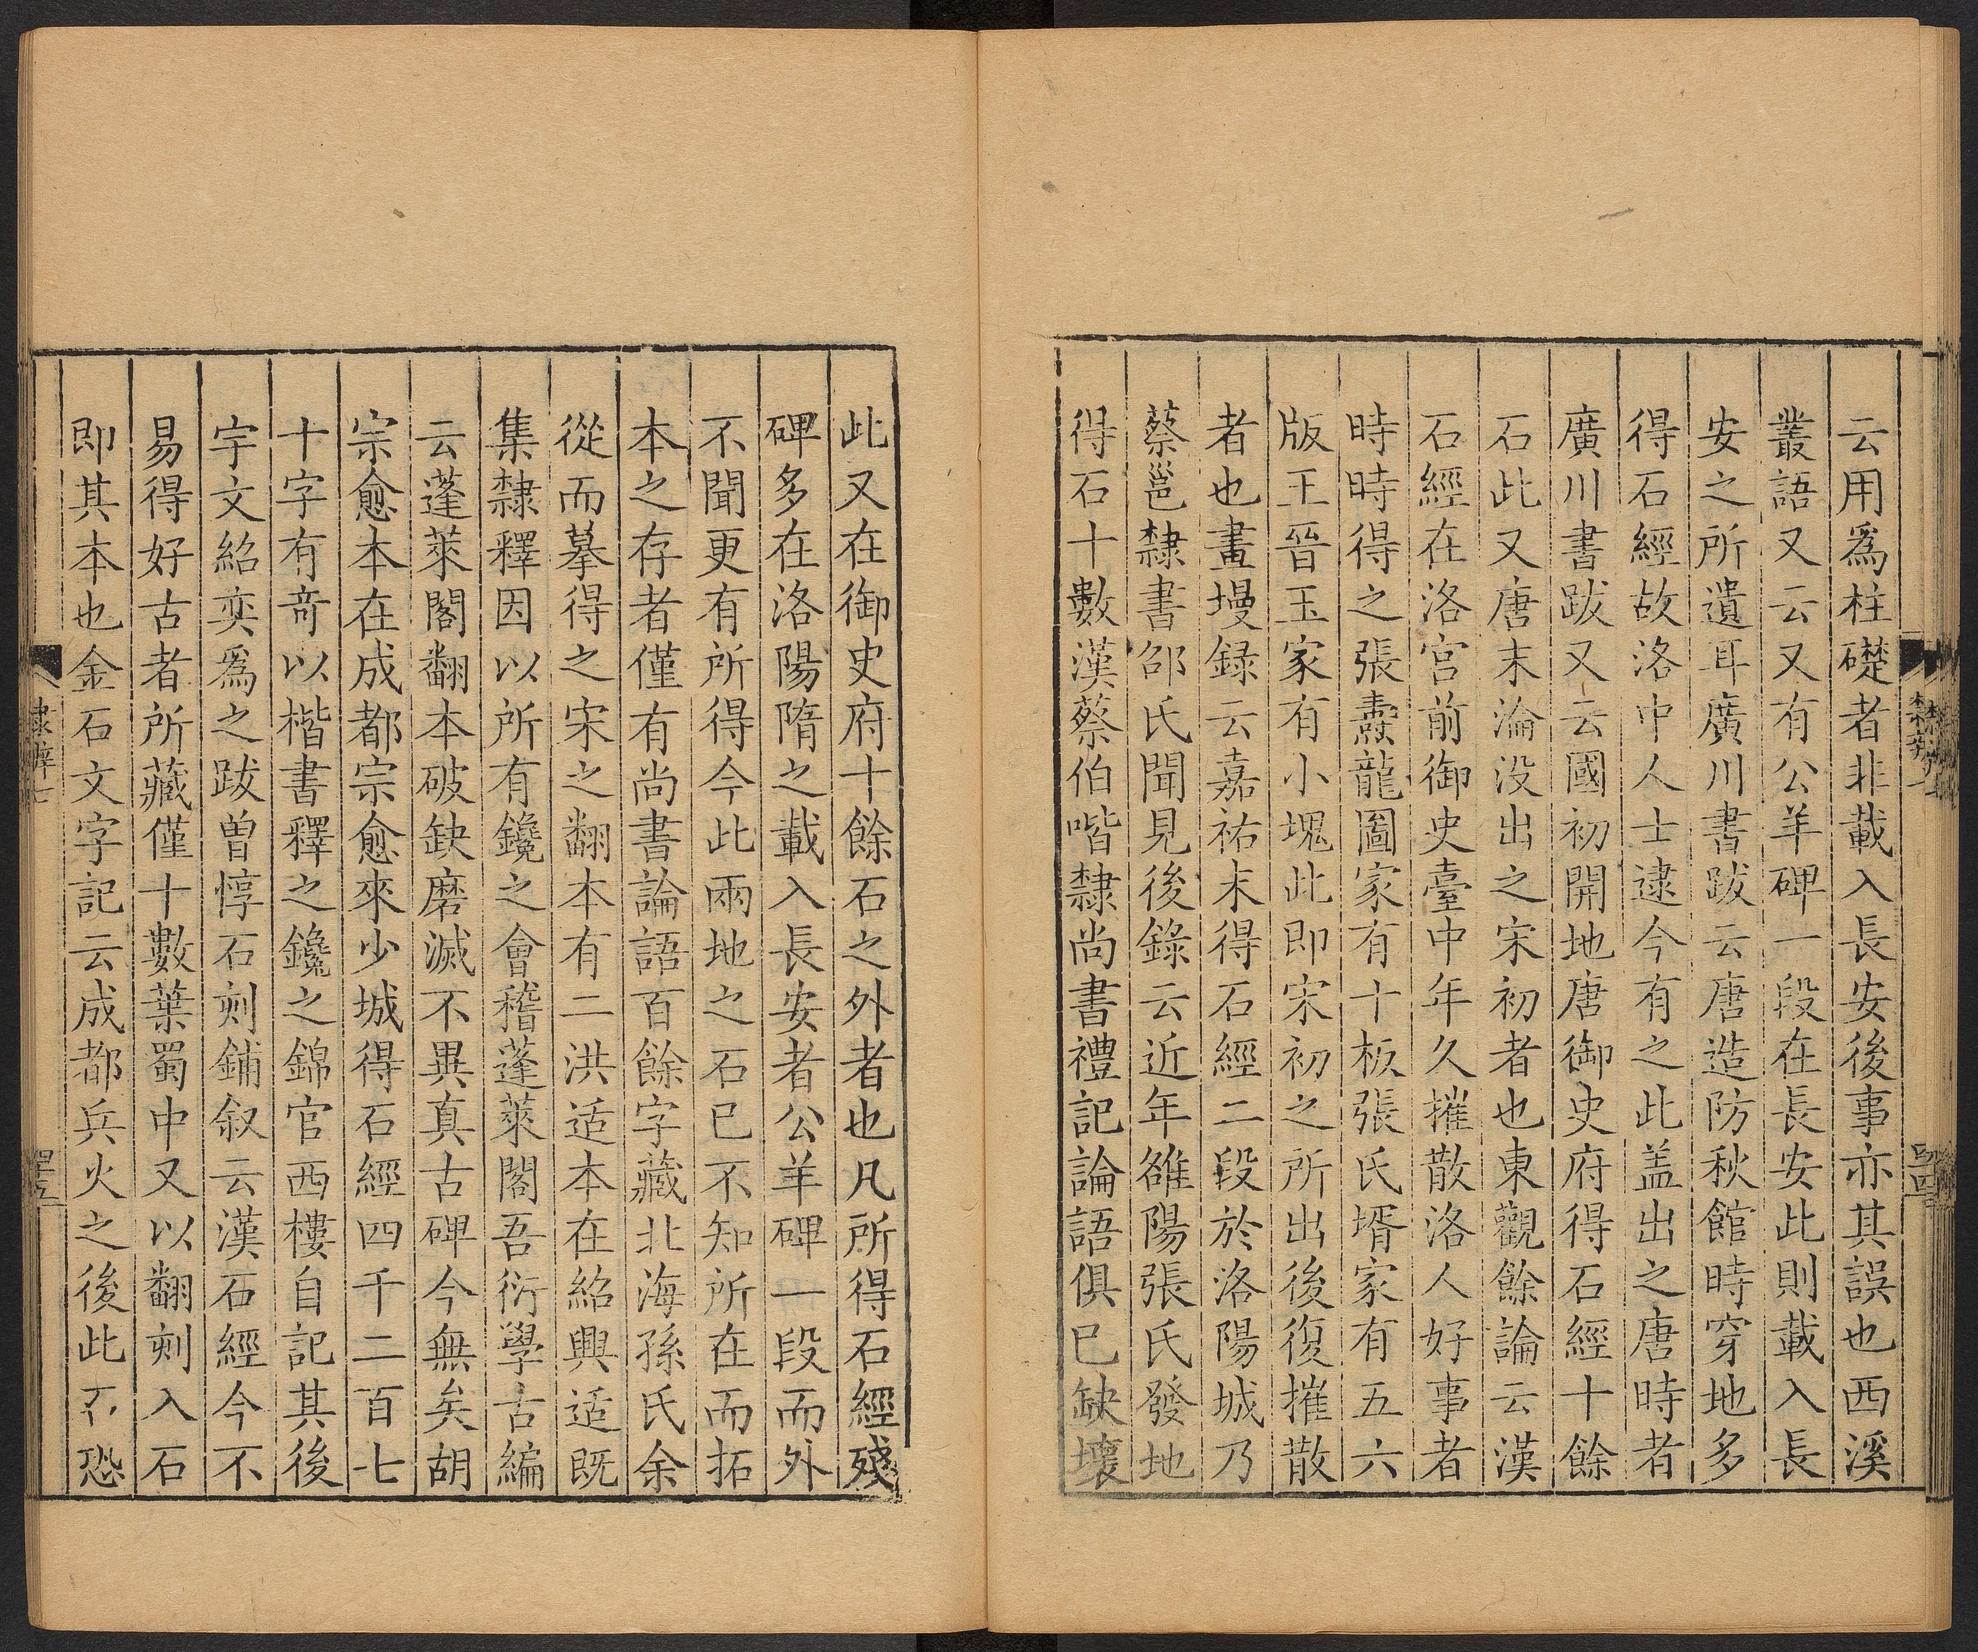 云用爲柱礎者非載入長安後事亦其誤也西溪
叢語又云又有公羊碑一段在長安此則載入長
安之所遺耳廣川書跋云唐造防秋館時穿地多
得石經故洛中人士逮今有之此盖出之唐時者
廣川書跋又云國初開地唐御史府得石經十餘
石此又唐末淪没出之宋初者也東觀餘論云漢
石經在洛宮前御史臺中年久摧散洛人好事者
時時得之張燾龍圖家有十板張氏壻家有五六
版王晉玉家有小塊此即宋初之所出後復摧散
者也畫墁録云嘉祐末得石經二段於洛陽城乃
蔡邕隸書邵氏聞見後錄云近年雒陽張氏發地
得石十數漢蔡伯喈隸尚書禮記論語俱已缺壞
此又在御史府十餘石之外者也凡所得石經殘
碑多在洛陽隋之載入長安者公羊碑一段而外
不聞更有所得今此兩地之石已不知所在而拓
本之存者僅有尚書論語百餘字藏北海孫氏余
從而摹得之宋之翻本有二洪适本在紹興适既
集隸釋因以所有鑱之會稽蓬萊閣吾衍學古編
云蓬萊閣翻本破缺磨滅不異真古碑今無矣胡
宗愈本在成都宗愈來少城得石經四千二百七
十字有奇以楷書釋之鑱之錦官西樓自記其後
宇文紹奕爲之跋曾惇石刻鋪叙云漢石經今不
易得好古者所藏僅十數葉蜀中又以翻刻入石
即其本也金石文字記云成都兵火之後此不恐
隸辨七
四五